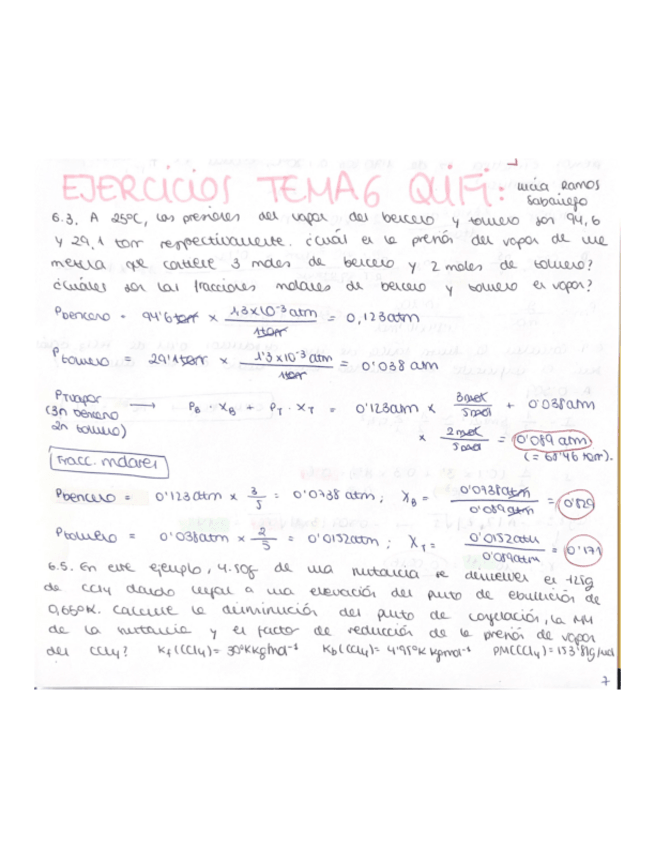 EJERCICIOS TEMA 6 QUIFI: Lucía Ramos
Sabariego
6.3. A 25ºC, las presiones del vapor del benceno y tolueno son 94,6
y 29,1 torr respectivamente. ¿Cuál es la presión del vapor de una
mezcla que contiene 3 moles de benceno y 2 moles de tolueno?
¿Cuáles son las fracciones molares de benceno y tolueno en vapor?
Pbenceno = 94'6 torr × 1,3×10⁻³ atm / 1 torr = 0,123 atm
Ptolueno = 29'1 torr × 1'3×10⁻³ atm / 1 torr = 0'038 atm
PTvapor
(3n benceno
2n tolueno) → PB · XB + PT · XT = 0'123 atm × 3 mol / 5 mol + 0'038 atm
× 2 mol / 5 mol = 0'089 atm
(= 68'46 torr).
Fracc. molares
Pbenceno = 0'123 atm × 3/5 = 0'0738 atm; XB = 0'0738 atm / 0'089 atm = 0'829
Ptolueno = 0'038 atm × 2/5 = 0'0152 atm; XT = 0'0152 atm / 0'089 atm = 0'171
6.5. En este ejemplo, 4.50g de una sustancia se disuelven en 125g
de CCl4 dando lugar a una elevación del punto de ebullición de
0,650ºK. Calcule la disminución del punto de congelación, la MM
de la sustancia y el factor de reducción de la presión de vapor
del CCl4? Kf(CCl4) = 30ºK kg mol⁻¹ Kb(CCl4) = 4'95ºK kg mol⁻¹ PM(CCl4) = 153'81g/mol
7